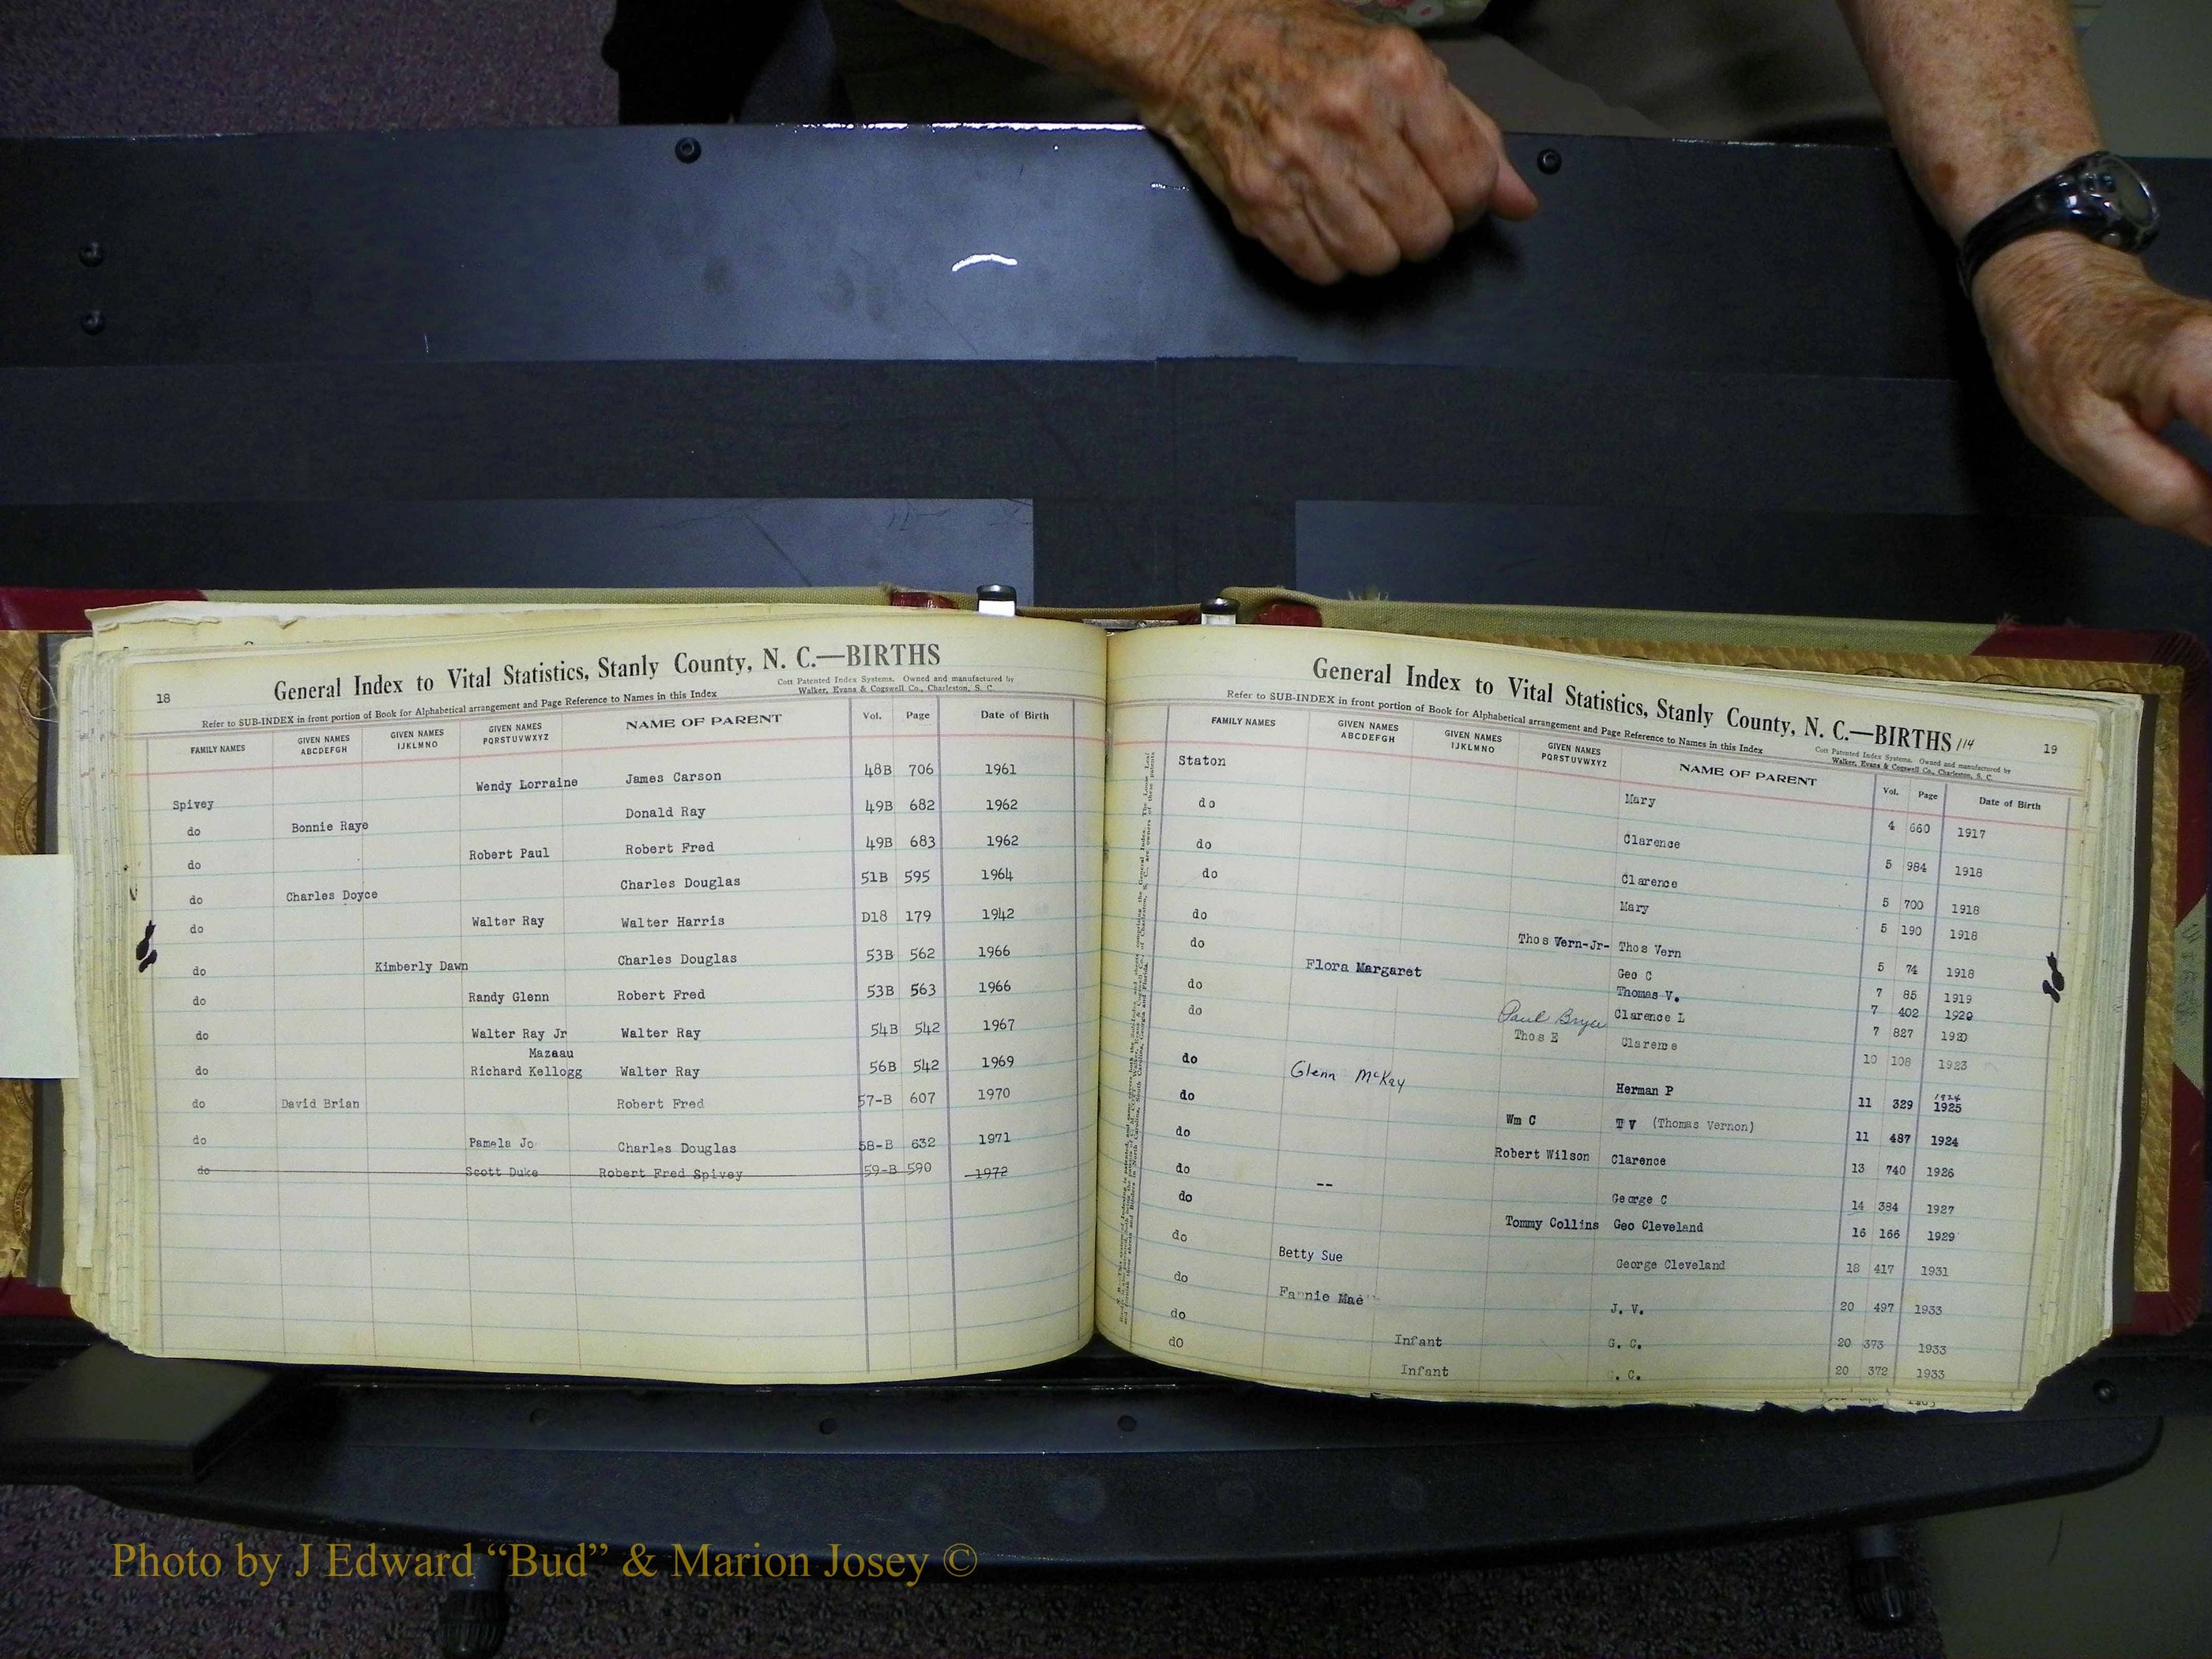 18
General Index to Vital Statistics, Stanly County, N. C.—BIRTHS
Cott Patented Index Systems. Owned and manufactured by
Walker, Evans & Cogswell Co., Charleston, S. C.
Refer to SUB-INDEX in front portion of Book for Alphabetical arrangement and Page Reference to Names in this Index
FAMILY NAMES GIVEN NAMES ABCDEFGH GIVEN NAMES IJKLMNO GIVEN NAMES PQRSTUVWXYZ NAME OF PARENT Vol. Page Date of Birth
Spivey Wendy Lorraine James Carson 48B 706 1961
do Bonnie Raye Donald Ray 49B 682 1962
do Robert Paul Robert Fred 49B 683 1962
do Charles Doyce Charles Douglas 51B 595 1964
do Walter Ray Walter Harris D18 179 1942
do Kimberly Dawn Charles Douglas 53B 562 1966
do Randy Glenn Robert Fred 53B 563 1966
do Walter Ray Jr Walter Ray 54B 542 1967
Mazeau
do Richard Kellogg Walter Ray 56B 542 1969
do David Brian Robert Fred 57-B 607 1970
do Pamela Jo Charles Douglas 58-B 632 1971
do Scott Duke Robert Fred Spivey 59-B 590 1972
General Index to Vital Statistics, Stanly County, N. C.—BIRTHS 114
19
Refer to SUB-INDEX in front portion of Book for Alphabetical arrangement and Page Reference to Names in this Index
Cott Patented Index Systems. Owned and manufactured by
Walker, Evans & Cogswell Co., Charleston, S. C.
FAMILY NAMES GIVEN NAMES ABCDEFGH GIVEN NAMES IJKLMNO GIVEN NAMES PQRSTUVWXYZ NAME OF PARENT Vol. Page Date of Birth
Staton Mary 4 660 1917
do Clarence 5 984 1918
do Clarence 5 700 1918
do Mary 5 190 1918
do Thos Vern-Jr- Thos Vern 5 74 1918
do Flora Margaret Geo C 7 85 1919
Thomas V. 7 402 1920
do Paul Bryce Clarence L 7 827 1920
do Thos E Clarence 10 108 1923
do Glenn McKay Herman P 11 329 1924 1925
do Wm C T V (Thomas Vernon) 11 487 1924
do Robert Wilson Clarence 13 740 1926
do -- George C 14 384 1927
do Tommy Collins Geo Cleveland 16 166 1929
do Betty Sue George Cleveland 18 417 1931
do Fannie Mae J. V. 20 497 1933
do Infant G. C. 20 373 1933
dO Infant . C. 20 372 1933
Photo by J Edward “Bud” & Marion Josey ©